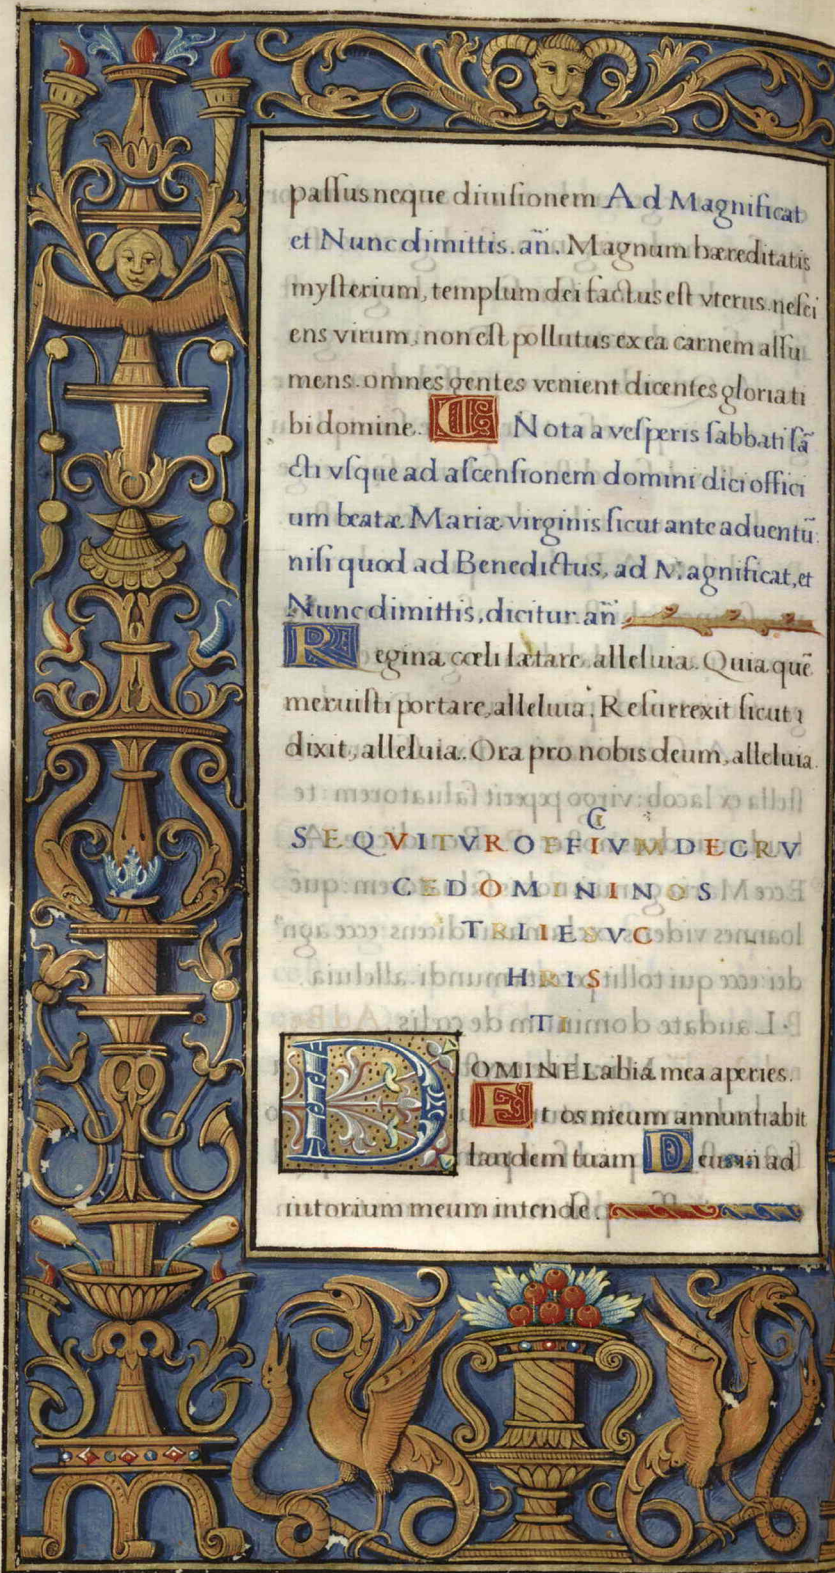 paſſus neque diuiſionem Ad Magnificat
et Nunc dimittis. añ. Magnum hæreditatis
myſterium, templum dei factus eſt vterus neſci
ens virum, non eſt pollutus ex ea carnem aſſu
mens. omnes gentes venient dicentes gloria ti
bi domine. C Nota a veſperis ſabbati ſã
cti vſque ad aſcenſionem domini dici offici
um beatæ Mariæ virginis ſicut ante aduentũ
niſi quod ad Benedictus, ad Magnificat, et
Nunc dimittis, dicitur añ
Regina cœli lætare, alleluia. Quia quẽ
meruiſti portare, alleluia. Reſurrexit ſicut
dixit, alleluia. Ora pro nobis deum, alleluia.
SEQVITVR OFFICIVM DE CRV
CE DOMINI NOS
TRI IESV C
HRIS
TI
DOMINE Labia mea aperies.
Et os meum annuntiabit
laudem tuam Deus in ad
iutorium meum intende.